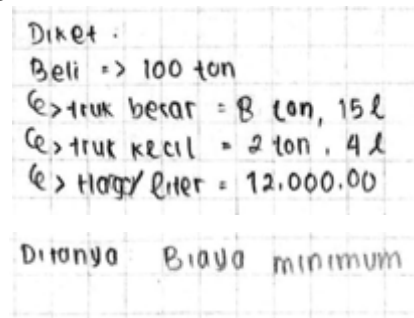 Diket :
Beli => 100 ton
↳> truk besar = 8 ton, 15 l
↳> truk kecil = 2 ton, 4 l
↳> Harga/liter = 12.000.00
Ditanya Biaya minimum